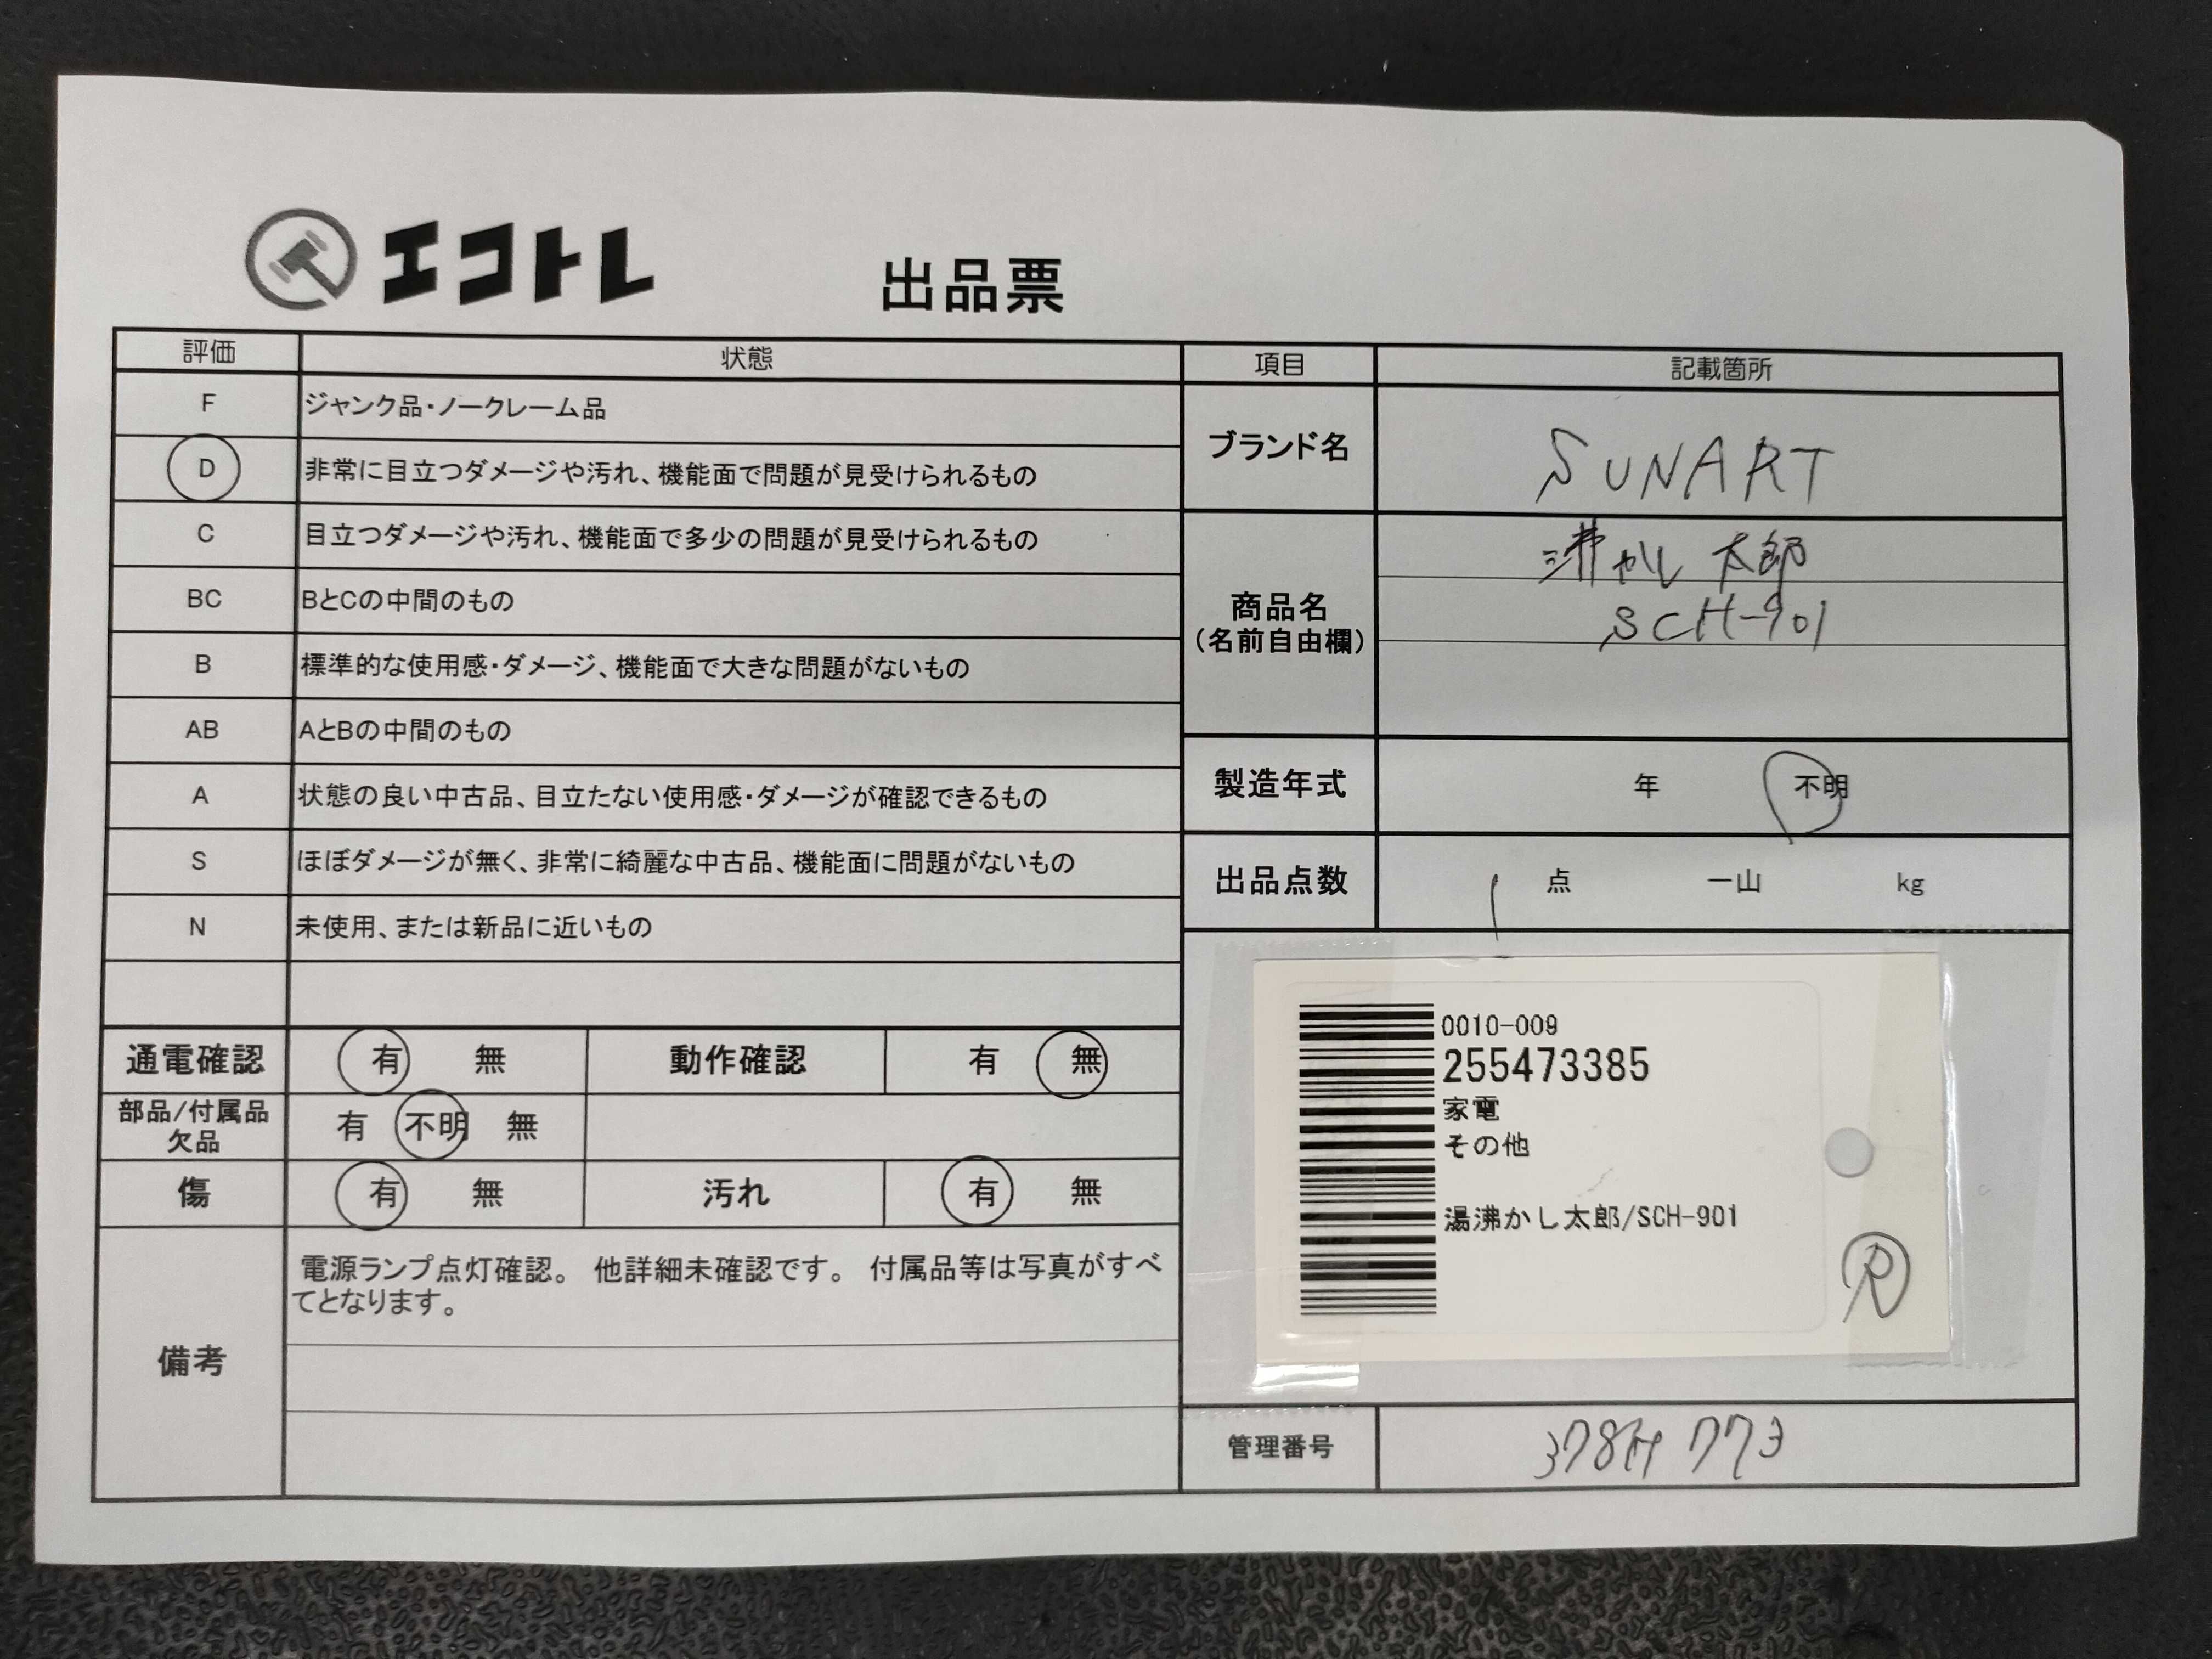 エコトレ
出品票
評価 状態
F ジャンク品・ノークレーム品
D 非常に目立つダメージや汚れ、機能面で問題が見受けられるもの
C 目立つダメージや汚れ、機能面で多少の問題が見受けられるもの
BC BとCの中間のもの
B 標準的な使用感・ダメージ、機能面で大きな問題がないもの
AB AとBの中間のもの
A 状態の良い中古品、目立たない使用感・ダメージが確認できるもの
S ほぼダメージが無く、非常に綺麗な中古品、機能面に問題がないもの
N 未使用、または新品に近いもの
通電確認 有 無 動作確認 有 無
部品/付属品
欠品
有 不明 無
傷 有 無 汚れ 有 無
備考
電源ランプ点灯確認。 他詳細未確認です。 付属品等は写真がすべ
てとなります。
項目 記載箇所
ブランド名 SUNART
商品名
(名前自由欄)
沸かし太郎
SCH-901
製造年式 年 不明
出品点数 1 点 一山 kg
0010-009
255473385
家電
その他
湯沸かし太郎/SCH-901
R
管理番号 378H 773